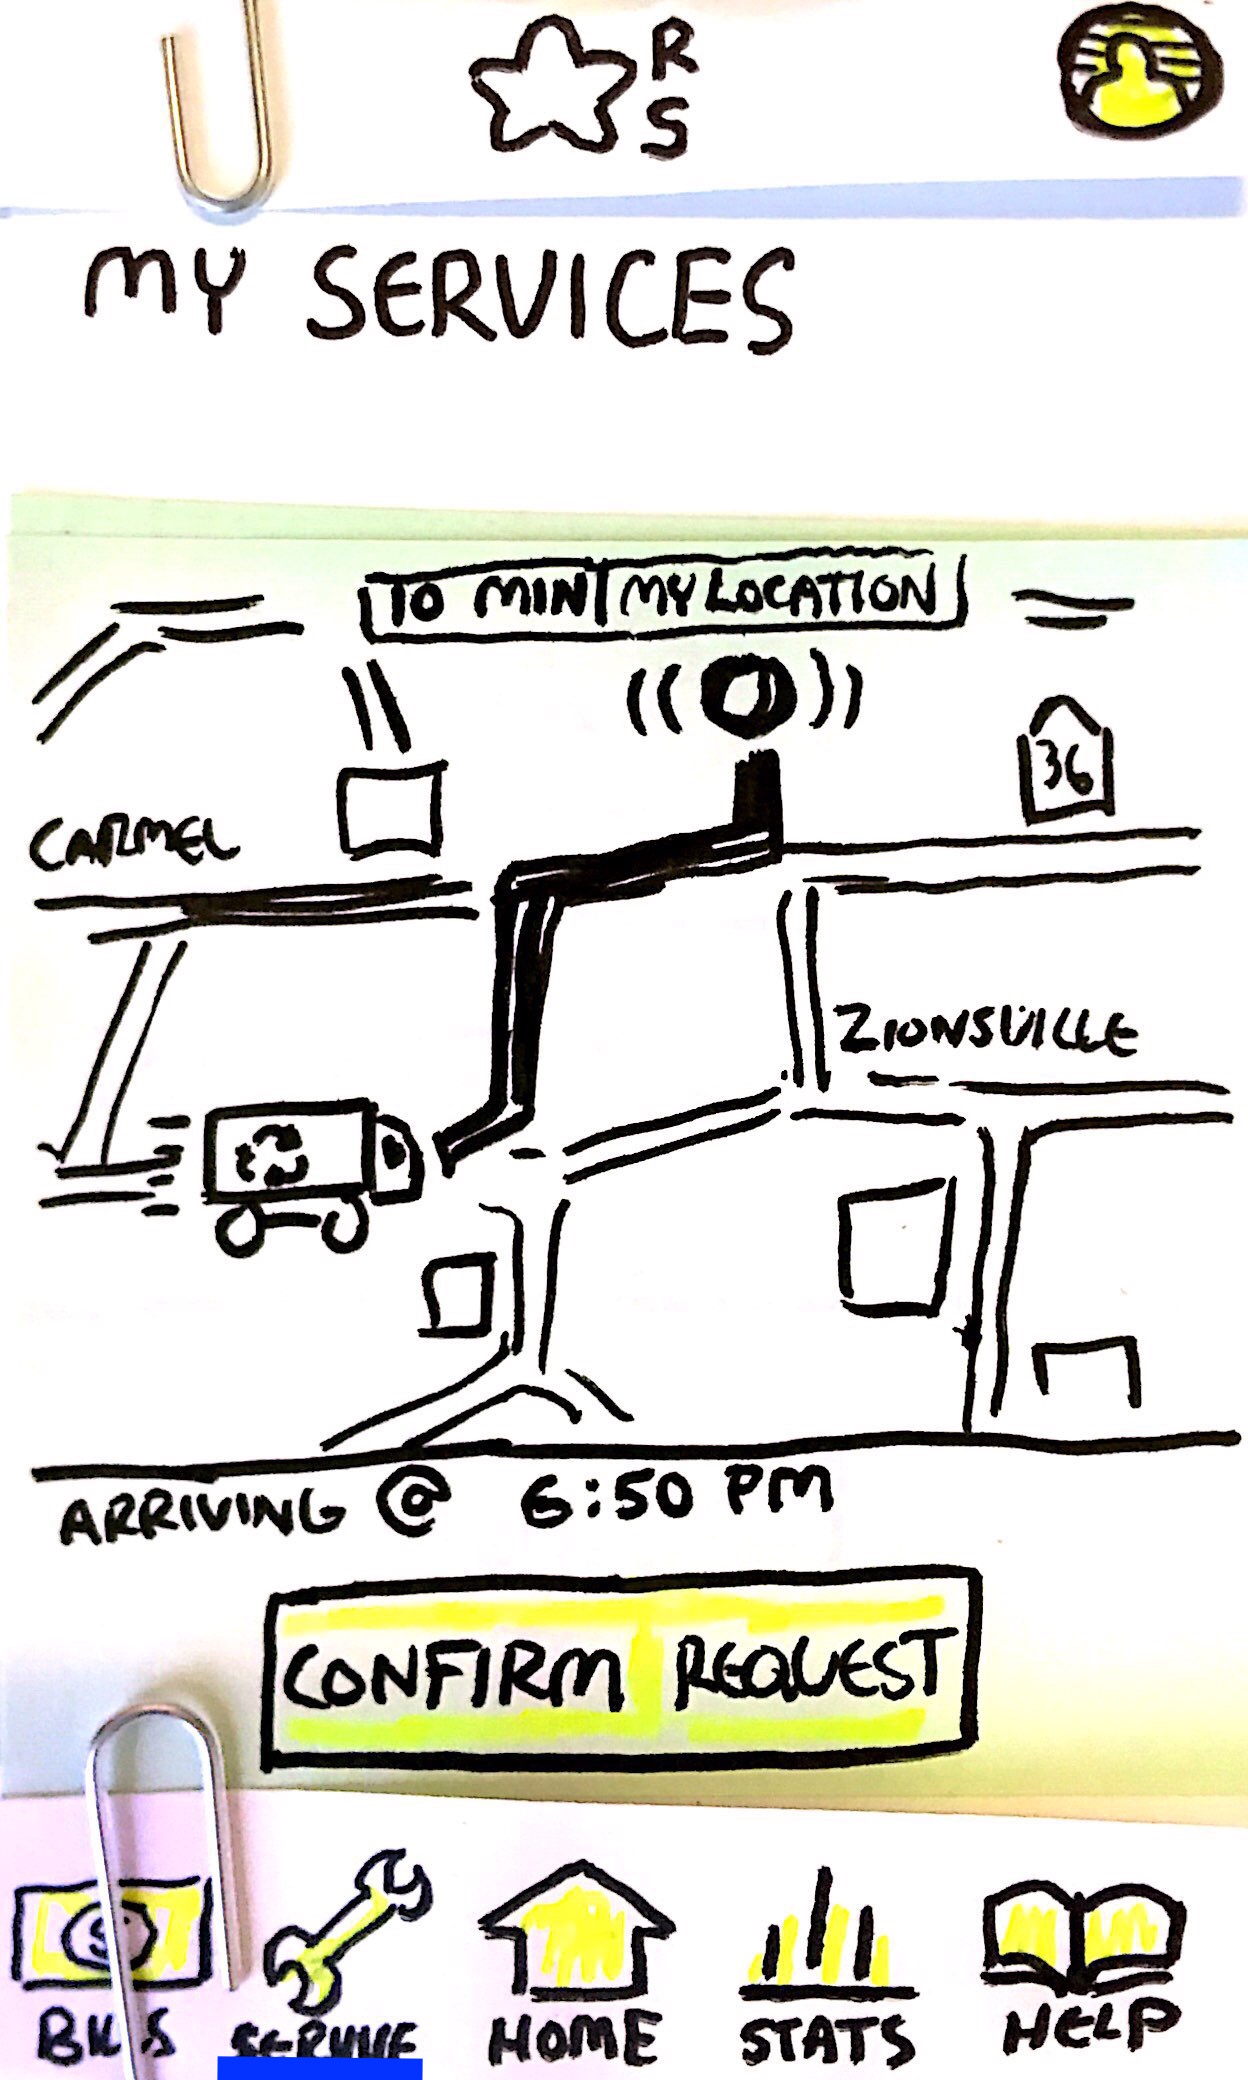 R
S
MY SERVICES
10 MIN MY LOCATION
36
CARMEL
ZIONSVILLE
ARRIVING @ 6:50 PM
CONFIRM REQUEST
$
BILLS SERVICE HOME STATS HELP